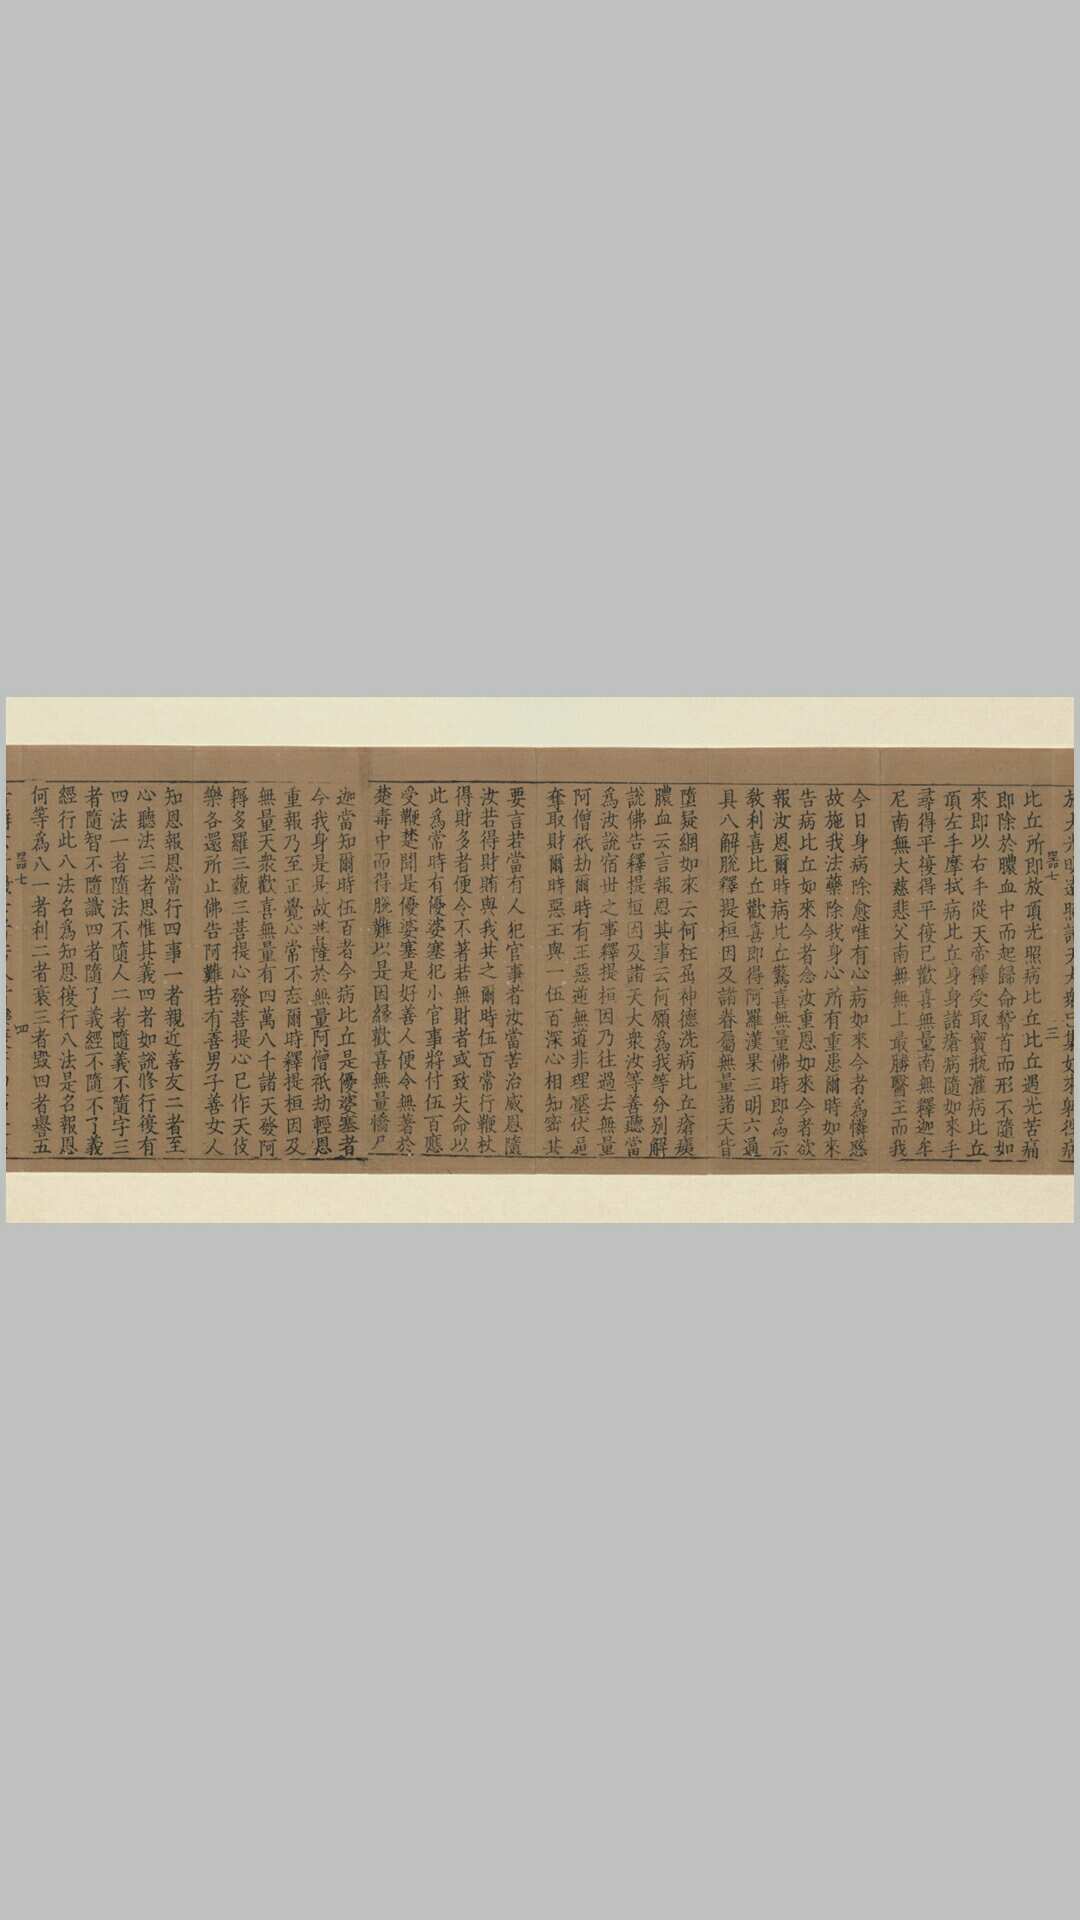 比丘所即放頂光照病比丘比丘遇光苦痛
即除於膿血中而起歸命稽首而形不隨如
來即以右手從天帝釋受取寶瓶灌病比丘
頂左手摩拭病比丘身身諸瘡病隨如來手
尋得平復得平復已歡喜無量南無釋迦牟
尼南無大慈悲父南無無上最勝醫王而我
今日身病除愈唯有心病如來今者為憐愍
故施我法藥除我身心所有重患爾時如來
告病比丘如來今者念汝重恩如來今者欲
報汝恩爾時病比丘驚喜無量佛時即為示
教利喜比丘歡喜即得阿羅漢果三明六通
具八解脫釋提桓因及諸眷屬無量諸天皆
墮疑網如來云何枉屈神德洗病比丘瘡痍
膿血云言報恩其事云何願為我等分別解
說佛告釋提桓因及諸天大衆汝等善聽當
為汝說宿世之事釋提桓因乃往過去無量
阿僧祇劫爾時有王惡逆無道非理壓伏逼
奪取財爾時惡王與一伍百深心相知密共
要言若當有人犯官事者汝當苦治威恩隨
汝若得財賄與我共之爾時伍百常行鞭杖
得財多者便令不著若無財者或致失命以
此為常時有優婆塞犯小官事將付伍百應
受鞭楚聞是優婆塞是好善人便令無著於
楚毒中而得脫難以是因緣歡喜無量憍尸
迦當知爾時伍百者今病比丘是優婆塞者
今我身是是故菩薩於無量阿僧祇劫輕恩
重報乃至正覺心常不忘爾時釋提桓因及
無量天衆歡喜無量有四萬八千諸天發阿
耨多羅三藐三菩提心發菩提心已作天伎
樂各還所止佛告阿難若有善男子善女人
知恩報恩當行四事一者親近善友二者至
心聽法三者思惟其義四者如說修行復有
四法一者隨法不隨人二者隨義不隨字三
者隨智不隨識四者隨了義經不隨不了義
經行此八法名為知恩復行八法是名報恩
何等為八一者利二者衰三者毀四者譽五